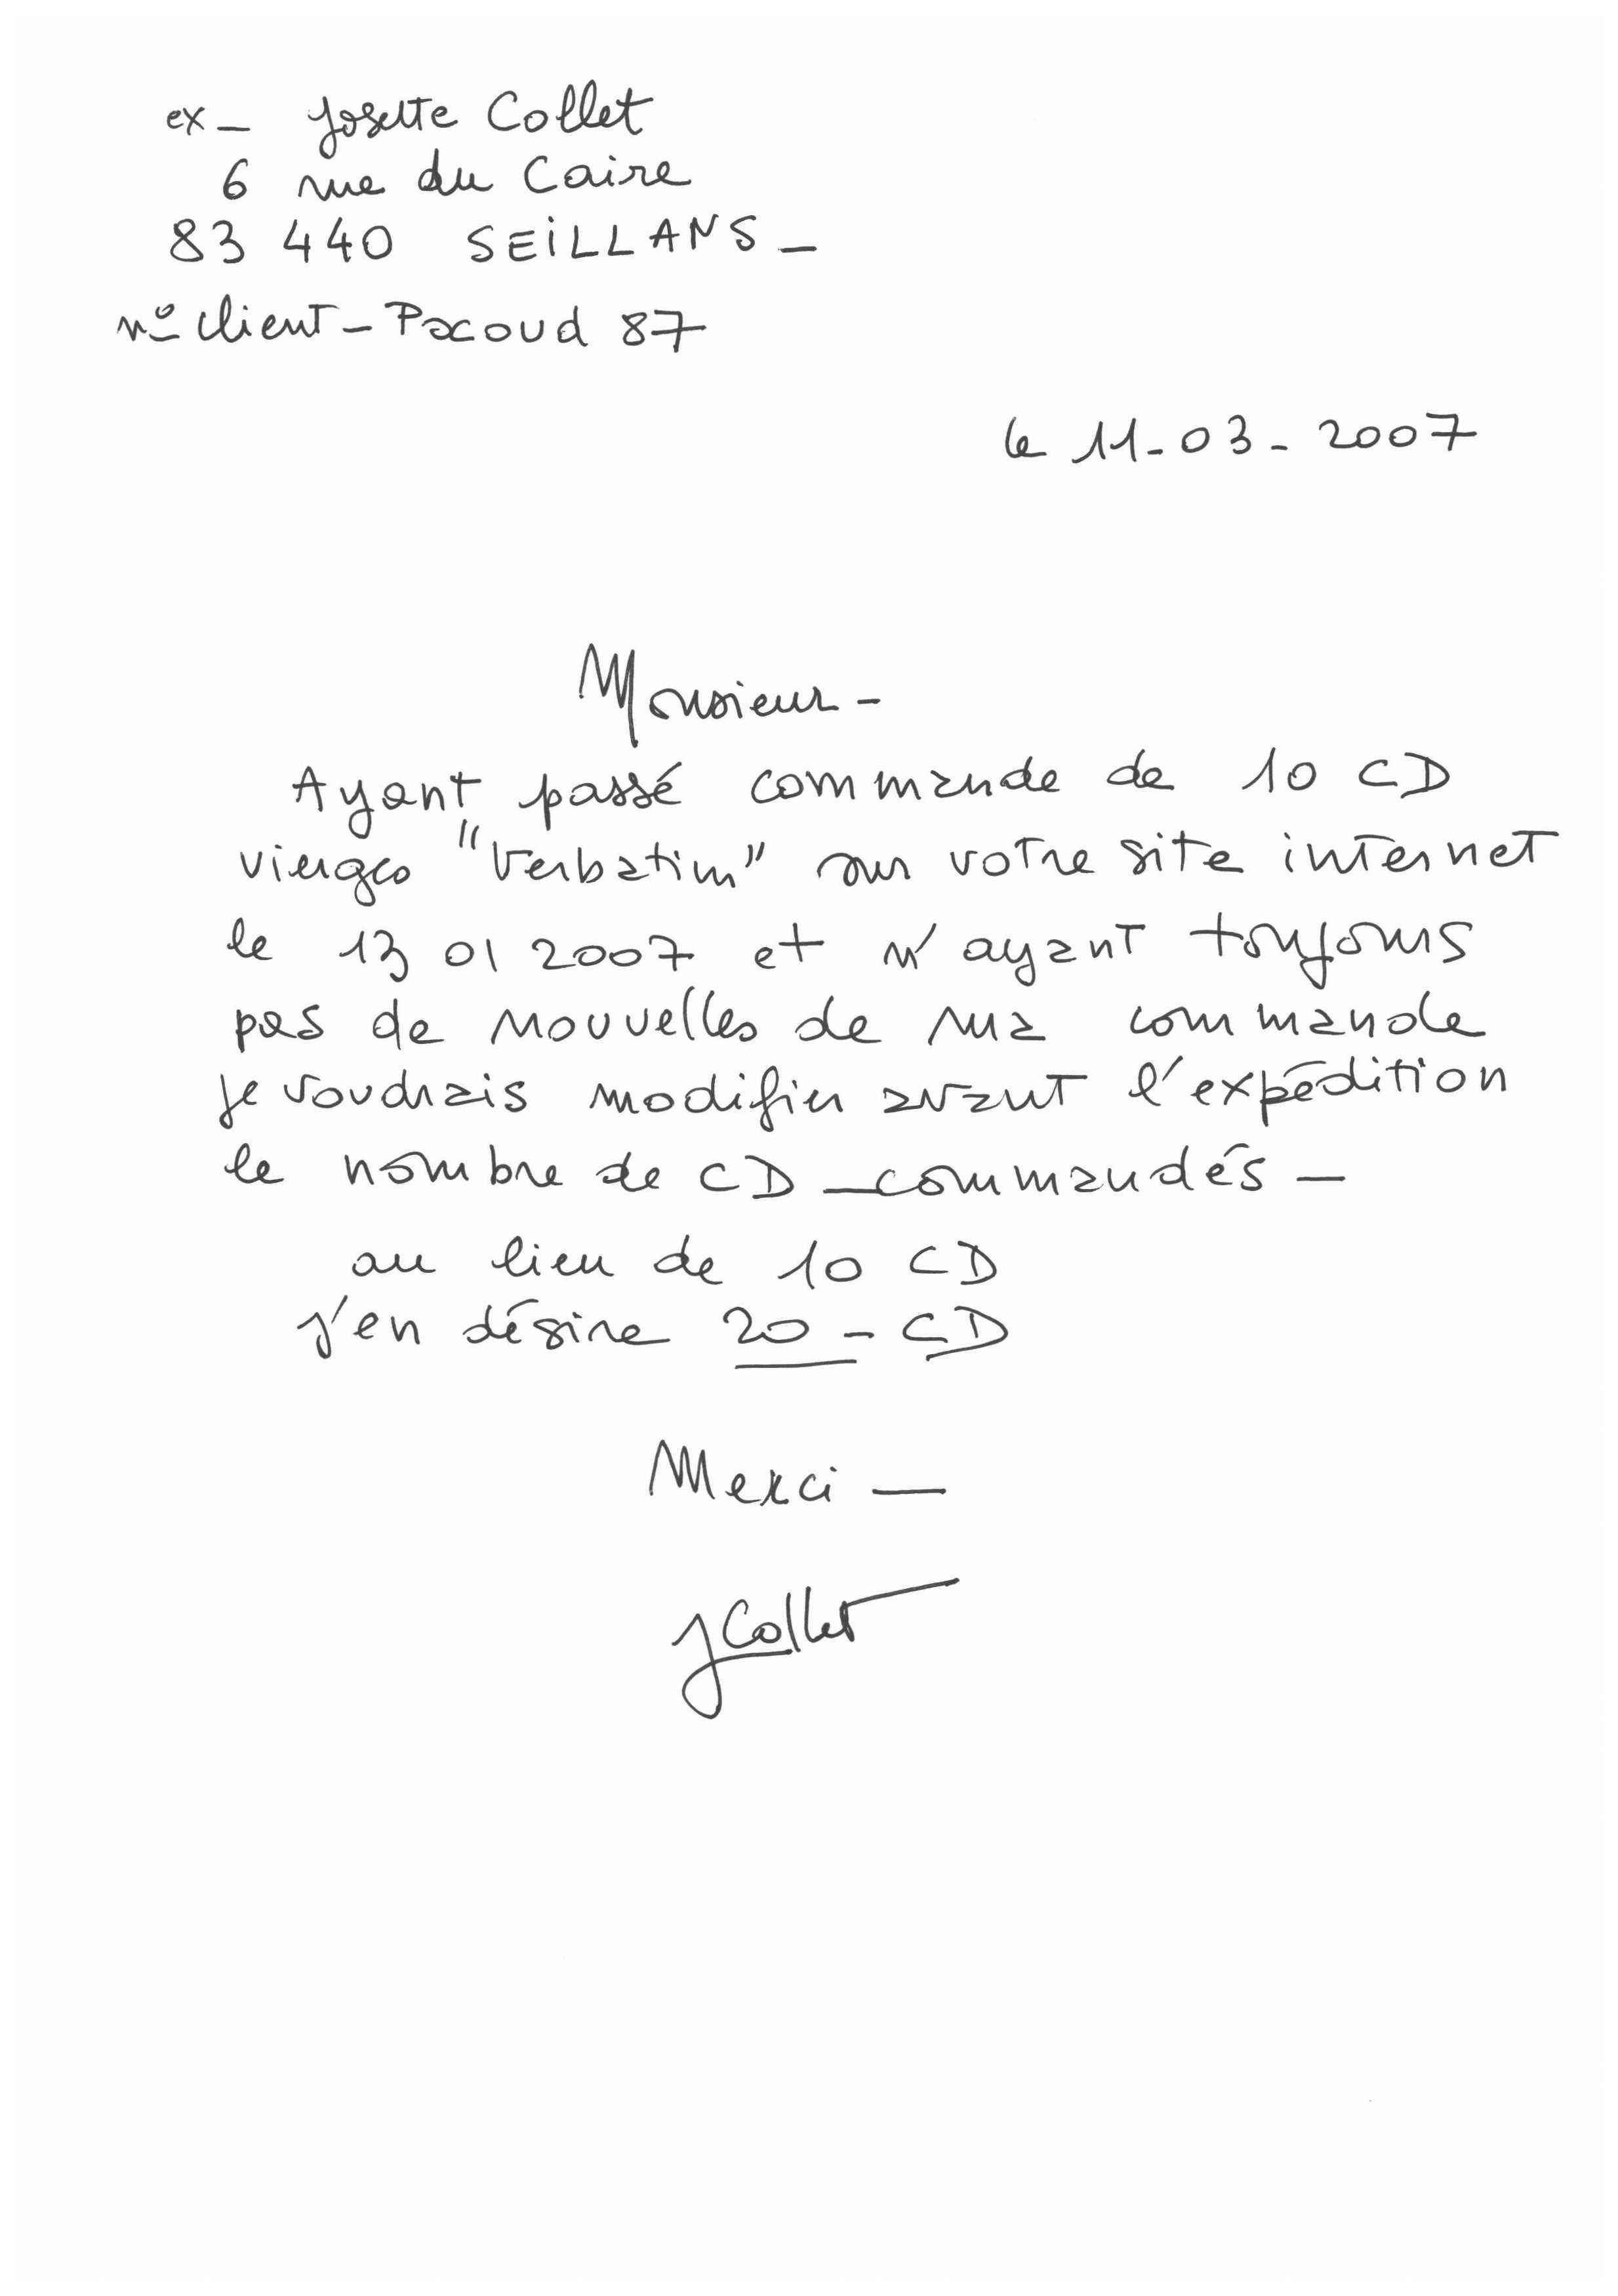 ex_ Josette Collet
6 rue du Caire
83 440 SEILLANS_
n° client - Pacoud 87
le 11-03-2007
Monsieur -
Ayant passé commande de 10 CD
vierges "Verbatim" sur votre site internet
le 13 01 2007 et n'ayant toujours
pas de nouvelles de ma commande
je voudrais modifier avant l'expédition
le nombre de CD_commandés_
au lieu de 10 CD
j'en désire 20 - CD
Merci _
JCollet